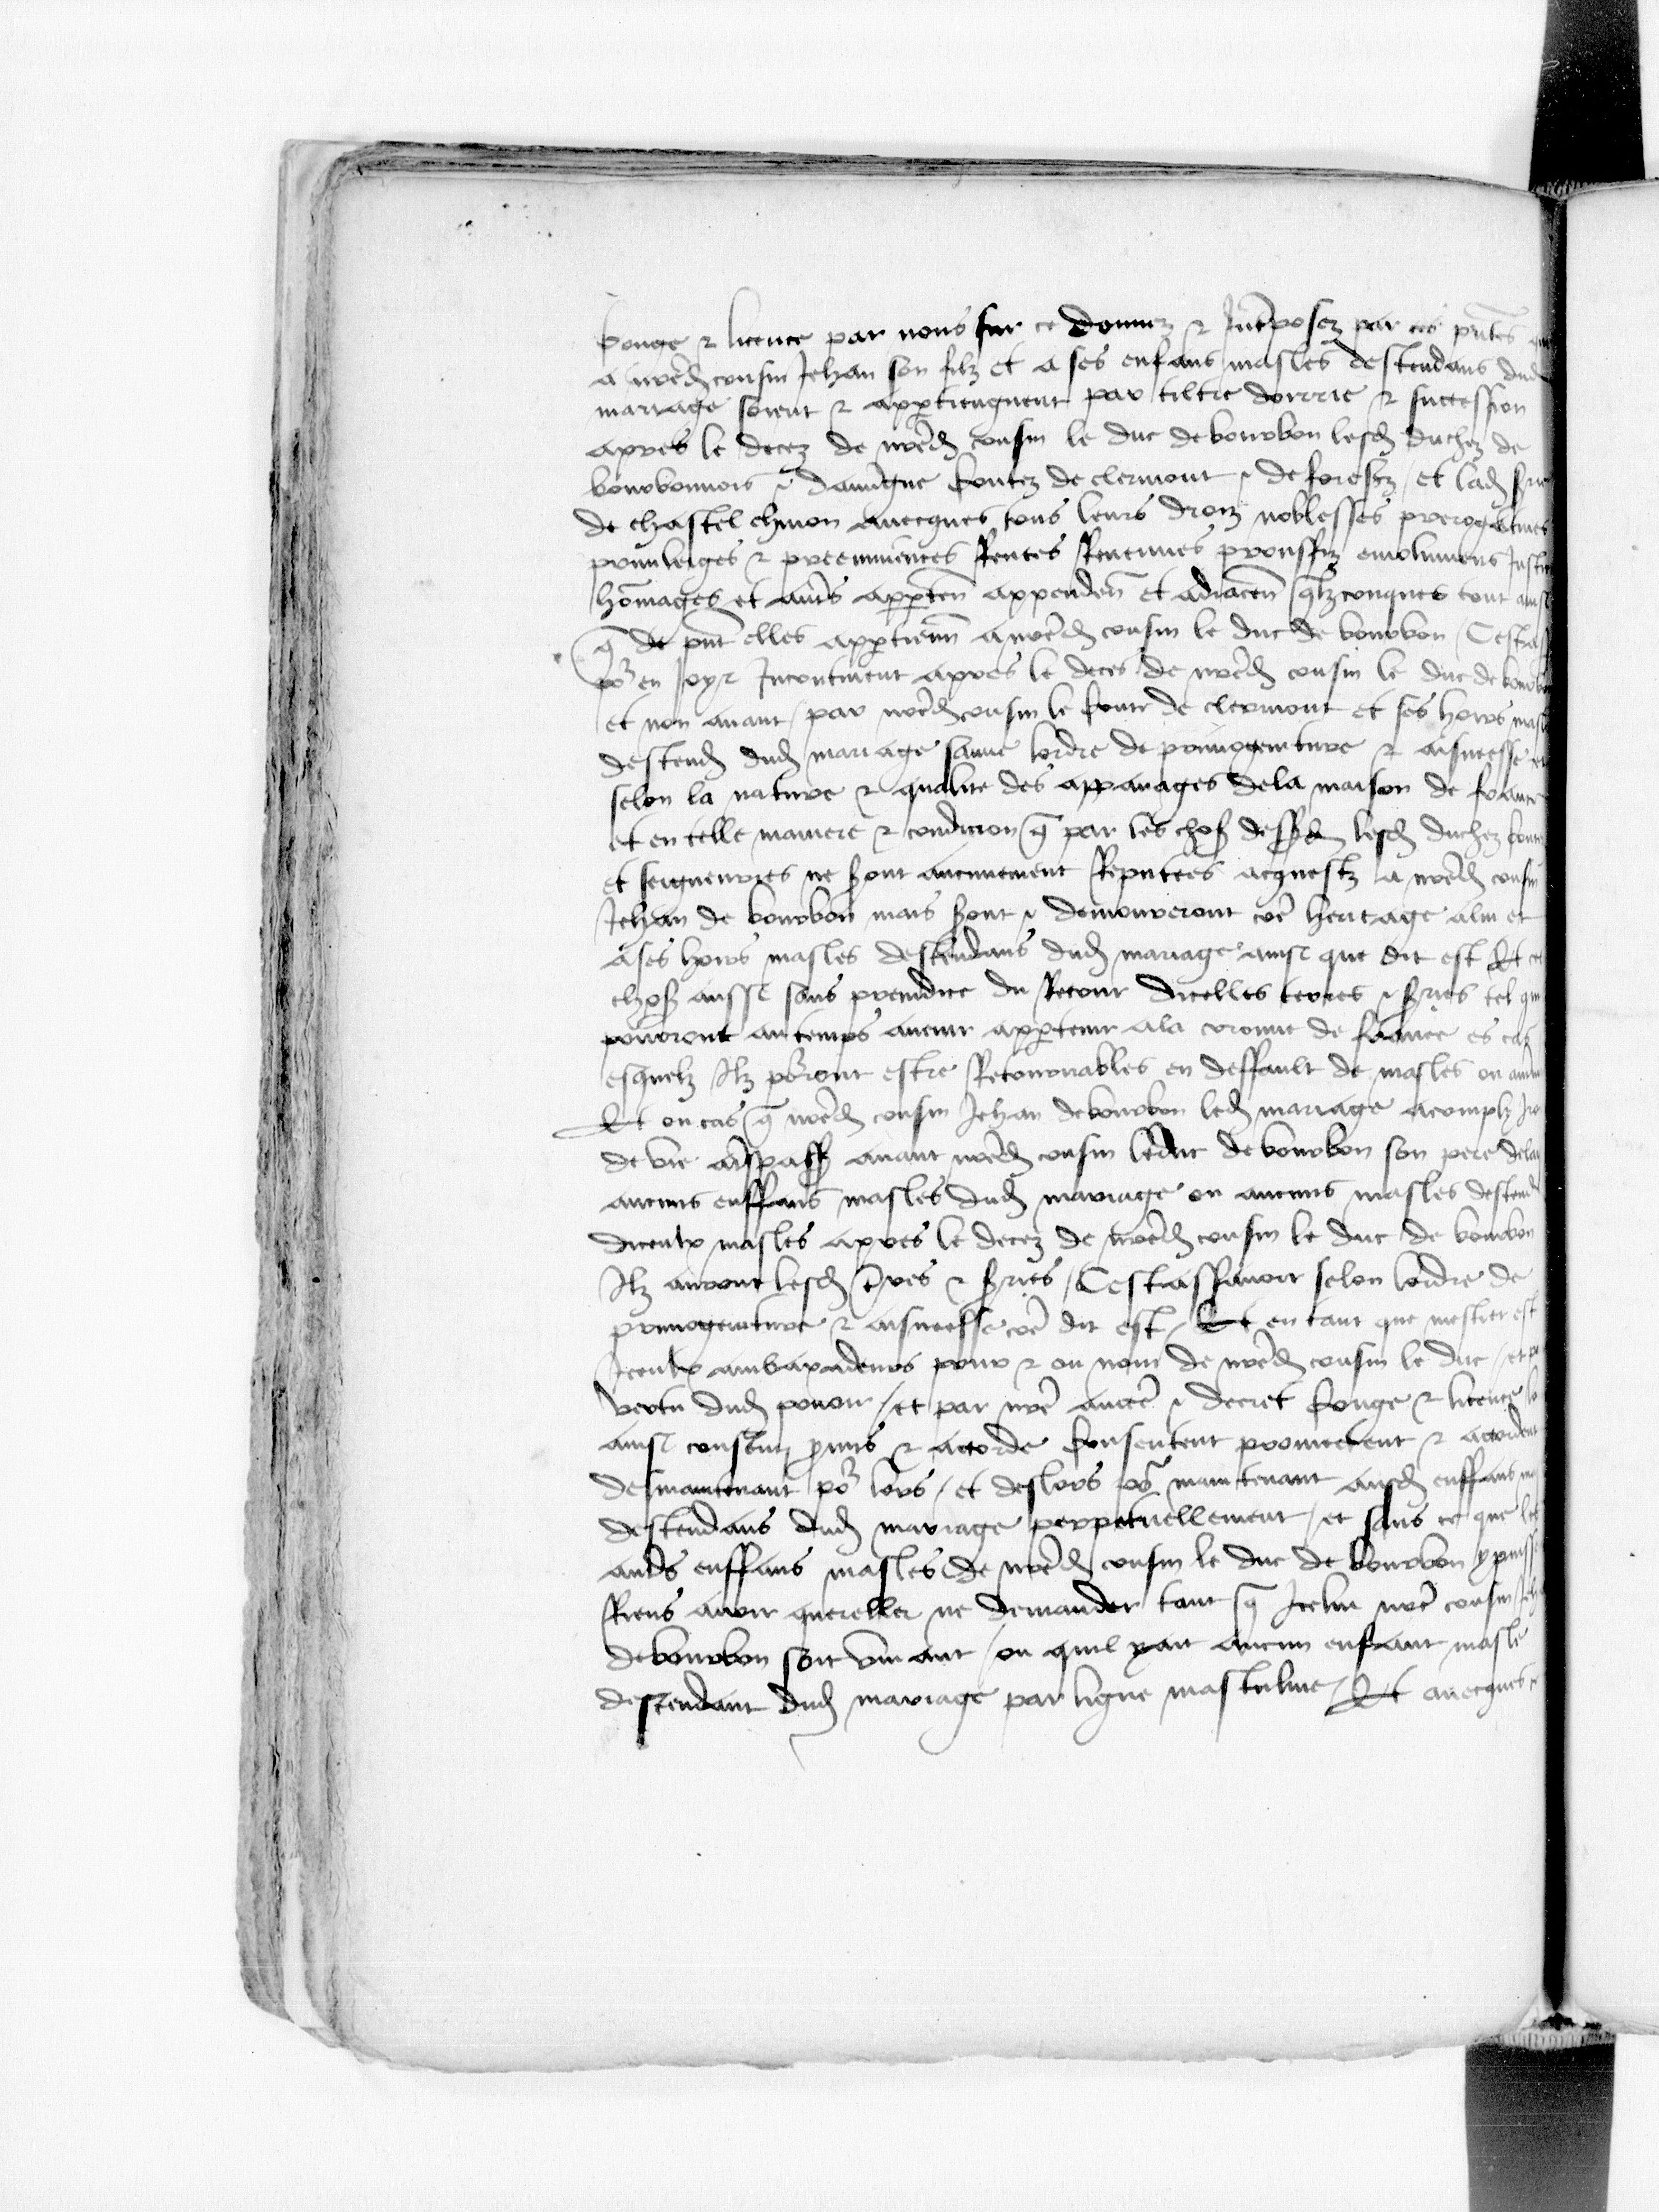 Conge & licence par nous sur ce donnez & Interposez par ces pntes
a nredit cousin Jehan son filz et a ses enfans masles descendans dud
mariage soient & appertiengnent par tiltre doirrie & succession
apres le decez de nred cousin le duc de bourbon lesd duchez de
bourbonnois & dauuigne Contez de clermont & de forestz / et lad srie
de chastel chinon auecques tous leurs droiz noblesses prerogatiues
priuileiges & preeminences Rentes Reuenues prouffiz emolumens Justic
hommages et autres apperten appenden et adiacen qlzconques tout ainsi
q de pnt elles appertienn a nred cousin le duc de bourbon / Cestass
por en joyr Incontinent apres le deces de nred cousin le duc de bourbon
et non auant / par nred cousin le Conte de clermont et ses hoirs masl
descend dud mariage saune lordre de primogeniture & aisneesse et
selon la nature & qualite des appanages de la maison de france
et en telle maniere & condicion q par les chos dessd lesd duchez contez
et seigneuries ne sont aucunement Reputees acquestz a nred cousin
Jehan de bourbon mais sont & demourront coe heritage a lui et
a ses hoirs masles descendans dud mariage ainsi que dit est Et ces
chos aussi sans preiudice du Retour dicelles terres & sries tel que
pourront au temps auenir appertenir a la cronne de france es cas
esquelz Ilz porront estre Retournables en deffault de masles ou autrem
Et ou cas q nred cousin Jehan de bourbon led mariage acomply
de vie trespass auant nred cousin le duc de bourbon son pere delais
aucuns enffans masles dud mariage ou aucuns masles descend
diceulx masles apres le decez de nred cousin le duc de bourbon
Ilz auront lesd terres & sries / Cestassauoir selon lordre de
primogeniture & aisneesse coe dit est / Et en tant que mestier est
Iceulx ambaxadeurs pour & ou nom de nred cousin le duc / et par
vertu dud pouoir / et par nre aucte & decret Conge & licence
ainsi consenti promis & accorde Consentent promectent & accordent
de maintenant por lors / et deslors por maintenant ausd enffans mas
descendans dud mariage perpetuellement / et sans ce que les
autres enffans masles de nred cousin le duc de bourbon y puissent
Riens auoir quereller ne demander tant q Icelui nre cousin Jeh
de bourbon soit viuant / ou quil y ait aucun enfant masle
descendant dud mariage par ligne masculine / Et auecques ce